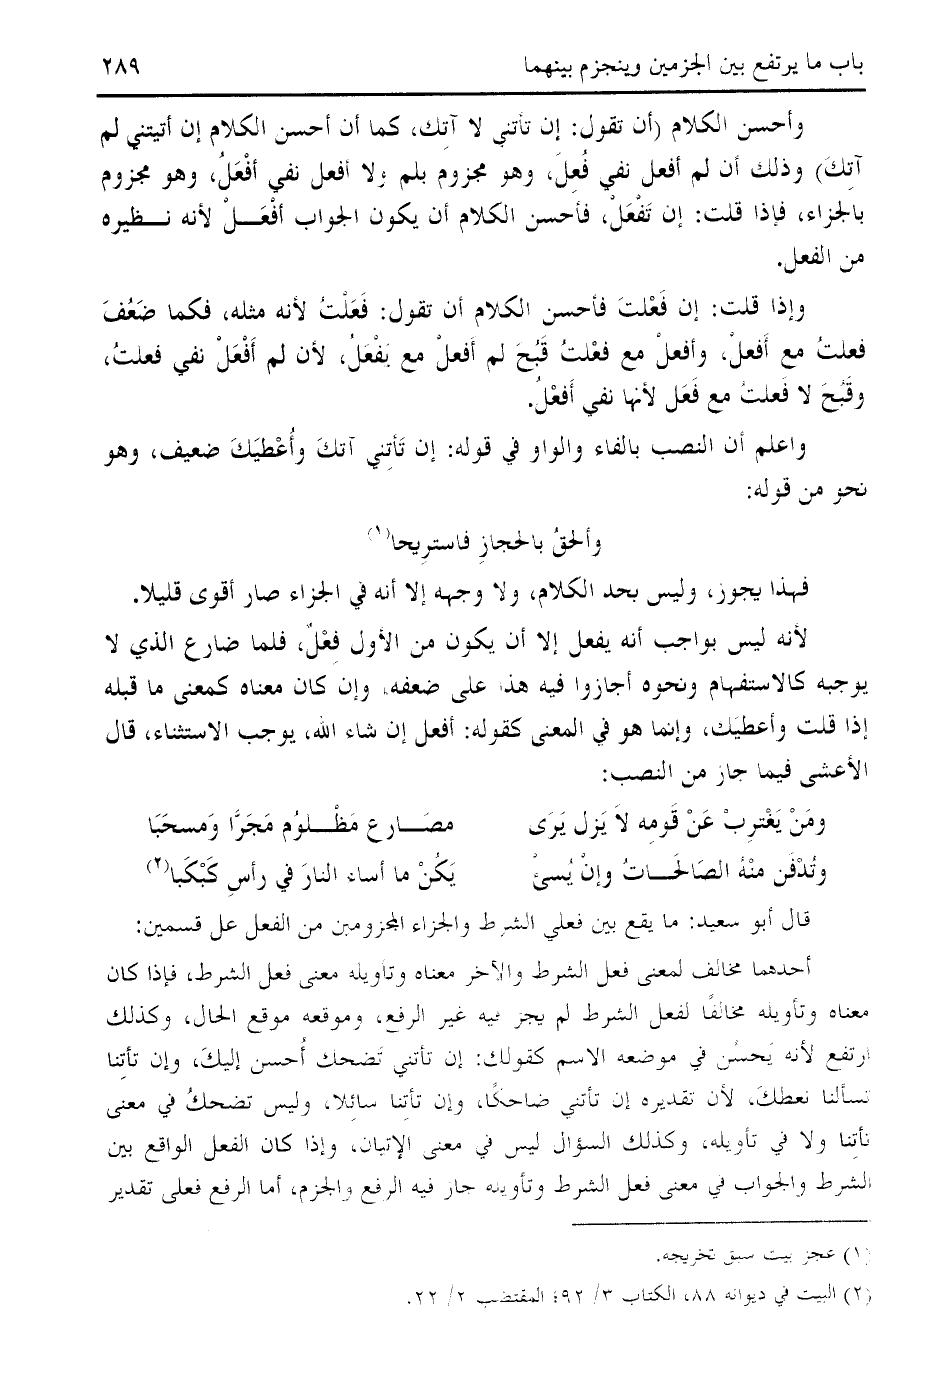 باب ما يرتفع بين الجزمين وينجزم بينهما ٢٨٩
وأحسن الكلام (أن تقول: إن تأتني لا آتِك، كما أن أحسن الكلام إن أتيتني لم
آتِكَ) وذلك أن لم أفعل نفي فُعِلَ، وهو مجزوم بلم ولا أفعل نفي أفْعَلُ، وهو مجزوم
بالجزاء، فإذا قلت: إن تَفْعَلْ، فأحسن الكلام أن يكون الجواب أفْعَــلْ لأنه نــظيره
من الفعل.
وإذا قلت: إن فَعْلتَ فأحسن الكلام أن تقول: فَعَلْتُ لأنه مثله، فكما ضَعُفَ
فعلتُ مع أَفعلْ، وأفعلْ مع فعْلتُ قَبُحَ لم أفعلْ مع يَفْعَلُ، لأن لم أَفْعَلْ نفي فعلتُ،
وقَبُحَ لا فَعلتُ مع فَعَل لأنها نفي أَفعْلُ.
واعلم أن النصب بالفاء والواو في قوله: إن تَأتني آتكَ وأُعْطيَكَ ضعيف، وهو
نحو من قوله:
وألحقُ بالحجازِ فاستريحا(١)
فهذا يجوز، وليس بحد الكلام، ولا وجهه إلا أنه في الجزاء صار أقوى قليلا.
لأنه ليس بواجب أنه يفعل إلا أن يكون من الأول فِعْلٌ، فلما ضارع الذي لا
يوجبه كالاستفهام ونحوه أجازوا فيه هذا على ضعفه، وإن كان معناه كمعنى ما قبله
إذا قلت وأعطيَك، وإنما هو في المعنى كقوله: أفعل إن شاء الله، يوجب الاستثناء، قال
الأعشى فيما جاز من النصب:
ومَنْ يَغْتربْ عَنْ قَومه لاَ يَزل يَرَى مصَــارع مَظْــلوُم مَجَرًّا وَمسحَبَا
وتُدْفَن منْهُ الصَالحَــاتُ وإنْ يُسئْ يَكُنْ ما أساء النارَ في رأسِ كَبْكَبا(٢)
قال أبو سعيد: ما يقع بين فعلي الشرط والجزاء المجزومين من الفعل على قسمين:
أحدهما مخالف لمعنى فعل الشرط والآخر معناه وتأويله معنى فعل الشرط، فإذا كان
معناه وتأويله مخالفًا لفعل الشرط لم يجز فيه غير الرفع، وموقعه موقع الحال، وكذلك
ارتفع لأنه يَحسُن في موضعه الاسم كقولك: إن تأتني تَضحك أُحسن إليكَ، وإن تأتنا
تسألنا نعطكَ، لأن تقديره إن تأتني ضاحكًا، وإن تأتنا سائلا، وليس تضحكُ في معنى
تأتنا ولا في تأويله، وكذلك السؤال ليس في معنى الإتيان، وإذا كان الفعل الواقع بين
الشرط والجواب في معنى فعل الشرط وتأويله جاز فيه الرفع والجزم، أما الرفع فعلى تقدير
(١) عجز بيت سبق تخريجه.
(٢) البيت في ديوانه ٨٨، الكتاب ٣/ ٩٢؛ المقتضب ٢/ ٢٢.